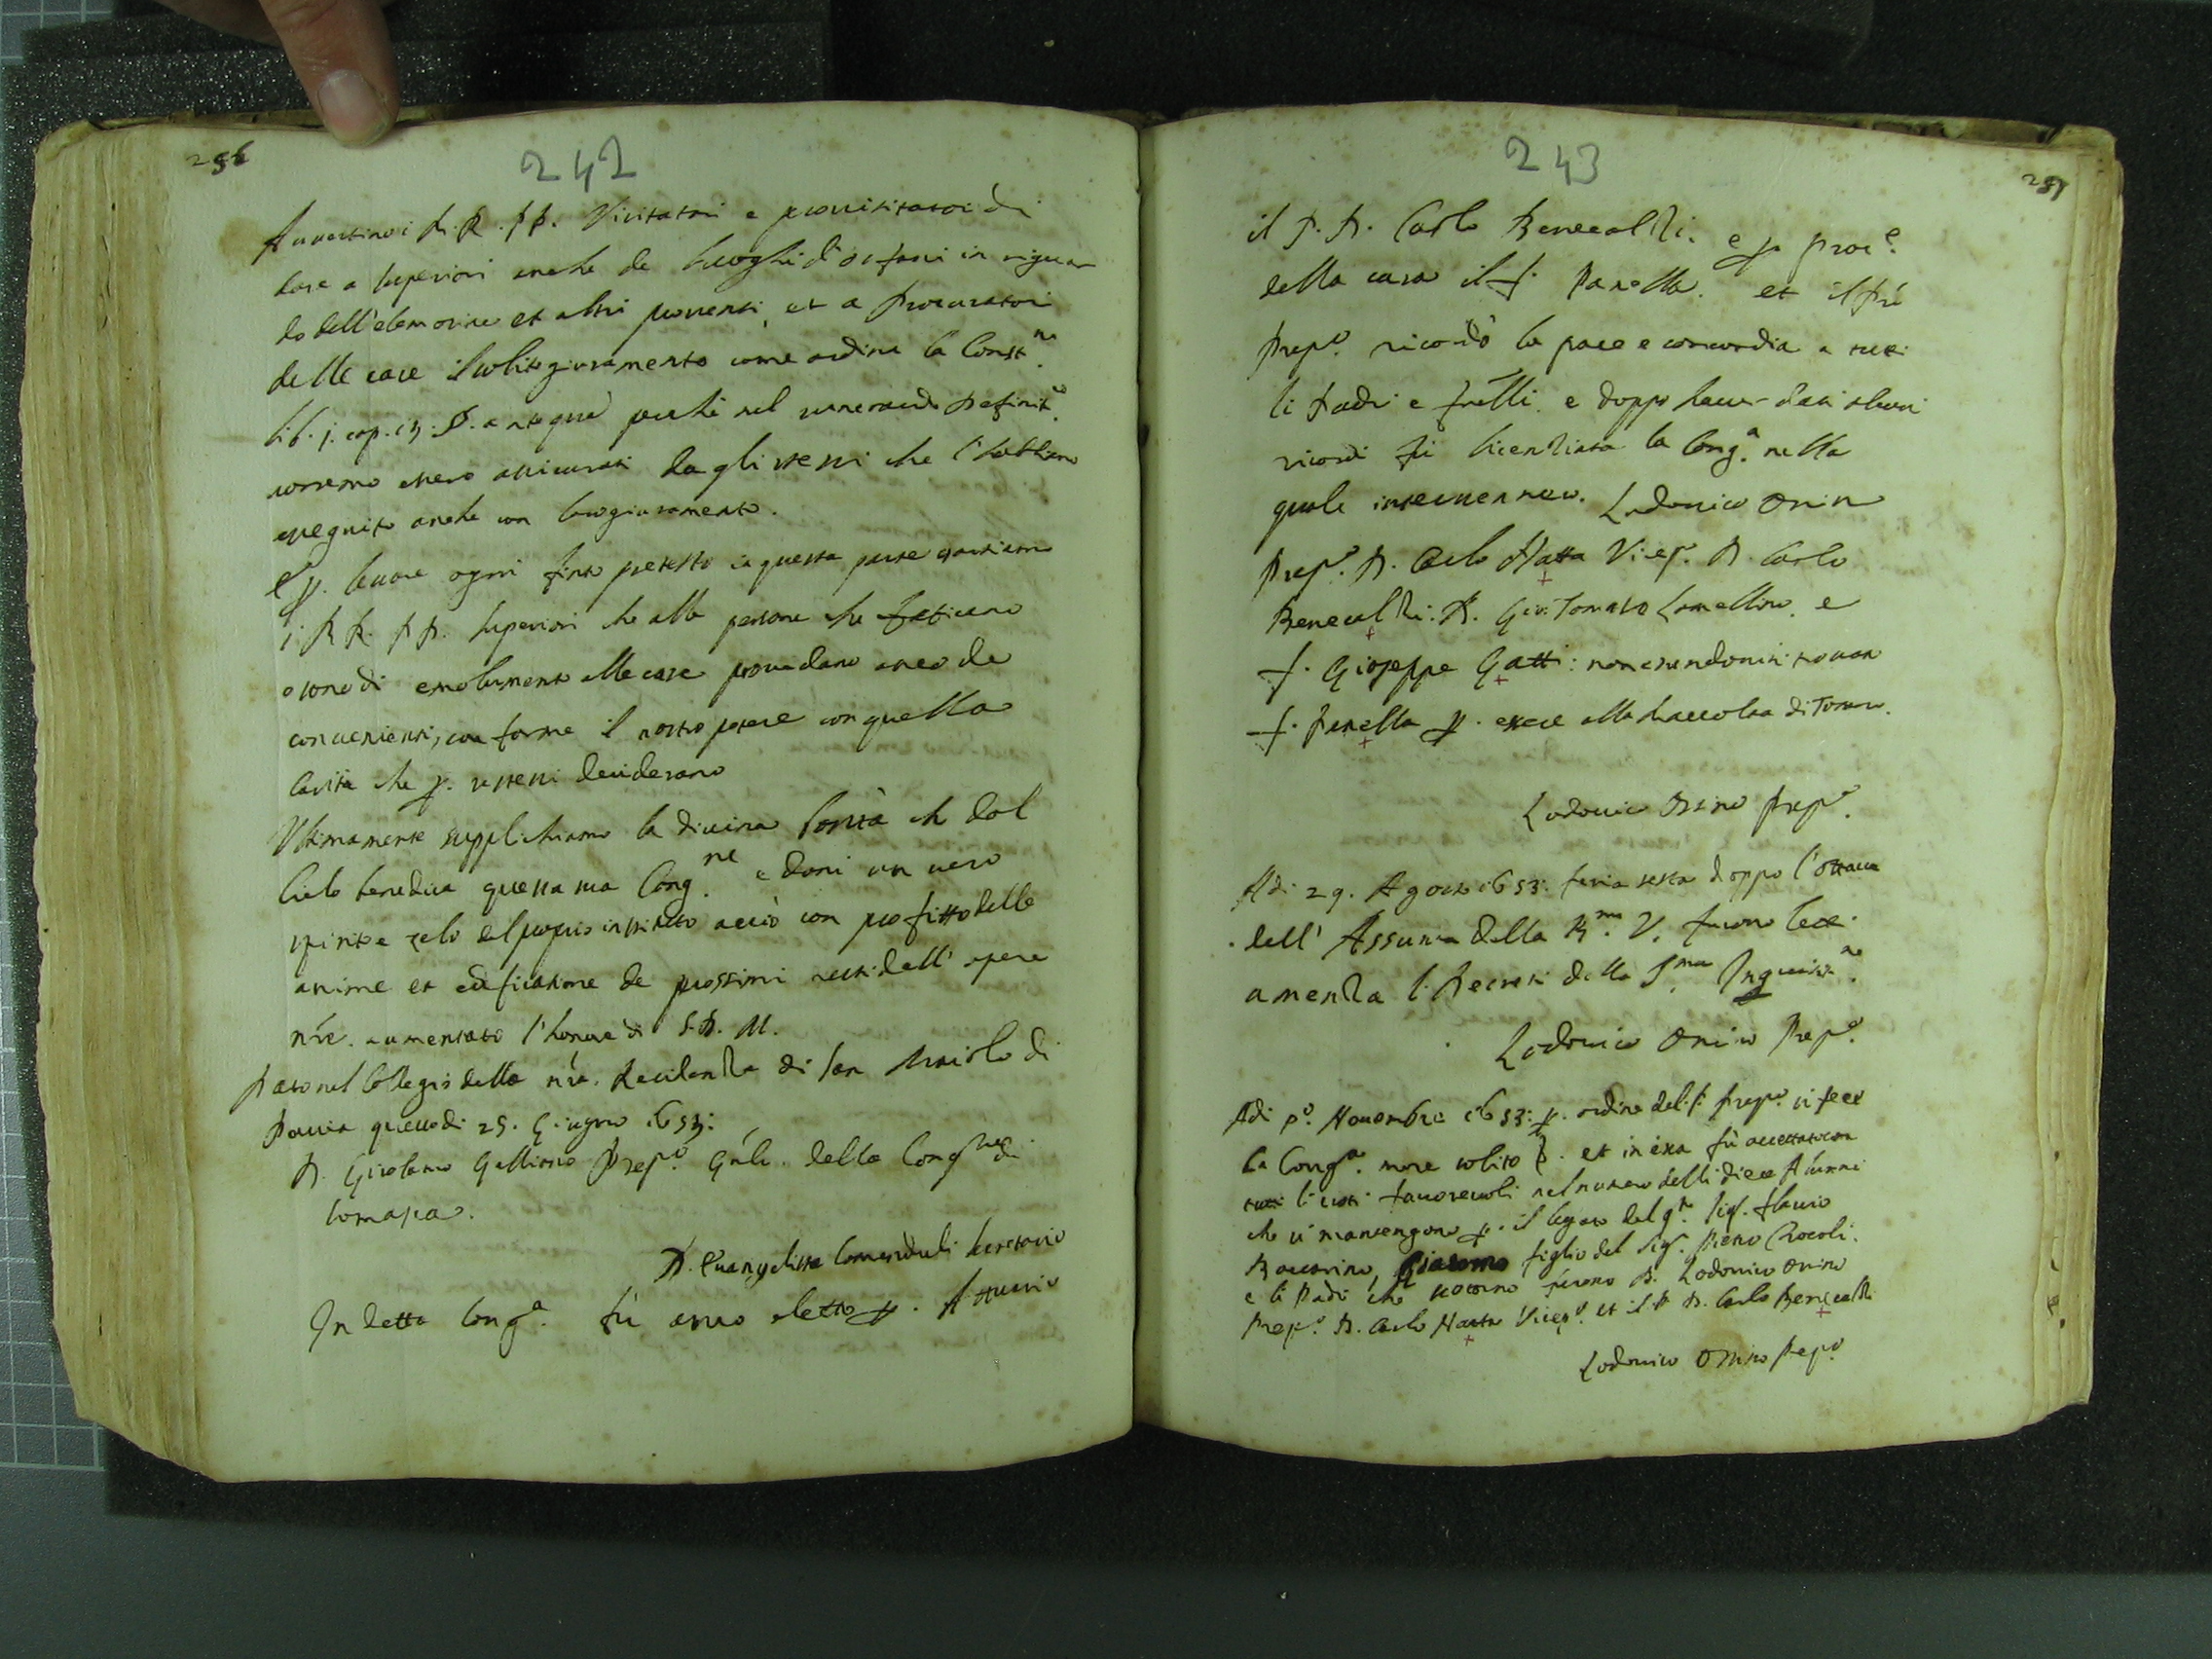 256
242
Auuertino i M. R. PP. Visitatori e prouisitatori di
dare a superiori anche de luoghi d'orfani in riguar
do dell'elemosine et altri prouenti, et a Procuratori
delle case il solito giuramento come ordina la Const.ne
lib. j. cap. 13. §. a ntaque perche nel venerando Definit.o
uorremo essere assicurati dagli stessi che l'habbiano
esseguito anche con loro giuramento.
E p. leuare ogni finto pretesto in questa parte essortiamo
i RR. PP. superiori che alle persone che faticano
o sono di emolumento alle case prouedano anco de
conuenienti, conforme il nostro potere con quella
Carità che p. se stessi desiderano
Ultimamente supplichiamo la diuina bontà ch dal
Cielo benedica questa sua Cong.ne e doni un uero
spirito e zelo del proprio instituto acciò con profitto delle
anime et edificatione de prossimi resti dell' opere
nre. aumentato l'honore di S.D. M.
Dato nel Collegio della nra. Residenza di San Maiolo di
Pauia questo di 25. Giugno 1653:
D. Girolamo Galliano Prep.o Gnle. della Cong.ne di
Somasca.
D. Euangelista Comenduli secretario
In detta Cong.a fù anco eletto p. Attuario
243
257
il P. D. Carlo Benecalzi. e p. proc.e
della casa il f. Panella. et il Pre
Prep.o ricordò la pace e concordia a tutti
li Padri e fratelli. e doppo hauer dati alcuni
ricordi fù licentiata la Cong.a nella
quale interuennero. Lodouico Orsin
Prep.o D. Carlo Natta Vicep.o D. Carlo
Benecalzi: D. Gio: Tomaso Lomellino. e
f. Gioseppe Gatti: non essendouisi trouato
f. Panella p. essere alla Raccolta di
Lodouico Orsino prep.o
Adi 29. Agosto 1653. feria sesta doppo l'ottaua
dell' Assunta della B.ma V. furono letti
a mensa li Decreti della S.ma Inquisit.ne
Lodouico Orsino Prep.o
Adi p.o Nouembre 1653: p. ordine del P. Prep.o si fece
la Cong.a more solito. et in essa fù accettato con
tutti li uoti fauoreuoli nel numero delli diece Alunni
che si mantengono p. il legato del q.m Sig. Flauio
Baccarino, Giacomo figlio del Sig. Pietro Crocoli.
e li Padri che uotorno furono D. Lodouico Orsino
Prep.o D. Carlo Natta Vicep.o et il P. D. Carlo Benecalzi
Lodouico Orsino Prep.o